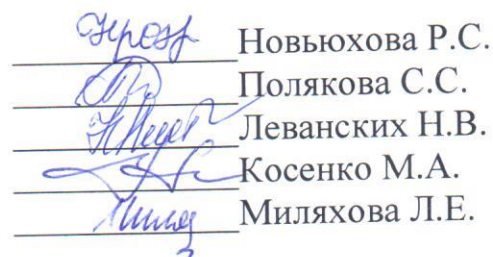 Новьюхова Р.С.
Полякова С.С.
Леванских Н.В.
Косенко М.А.
Миляхова Л.Е.